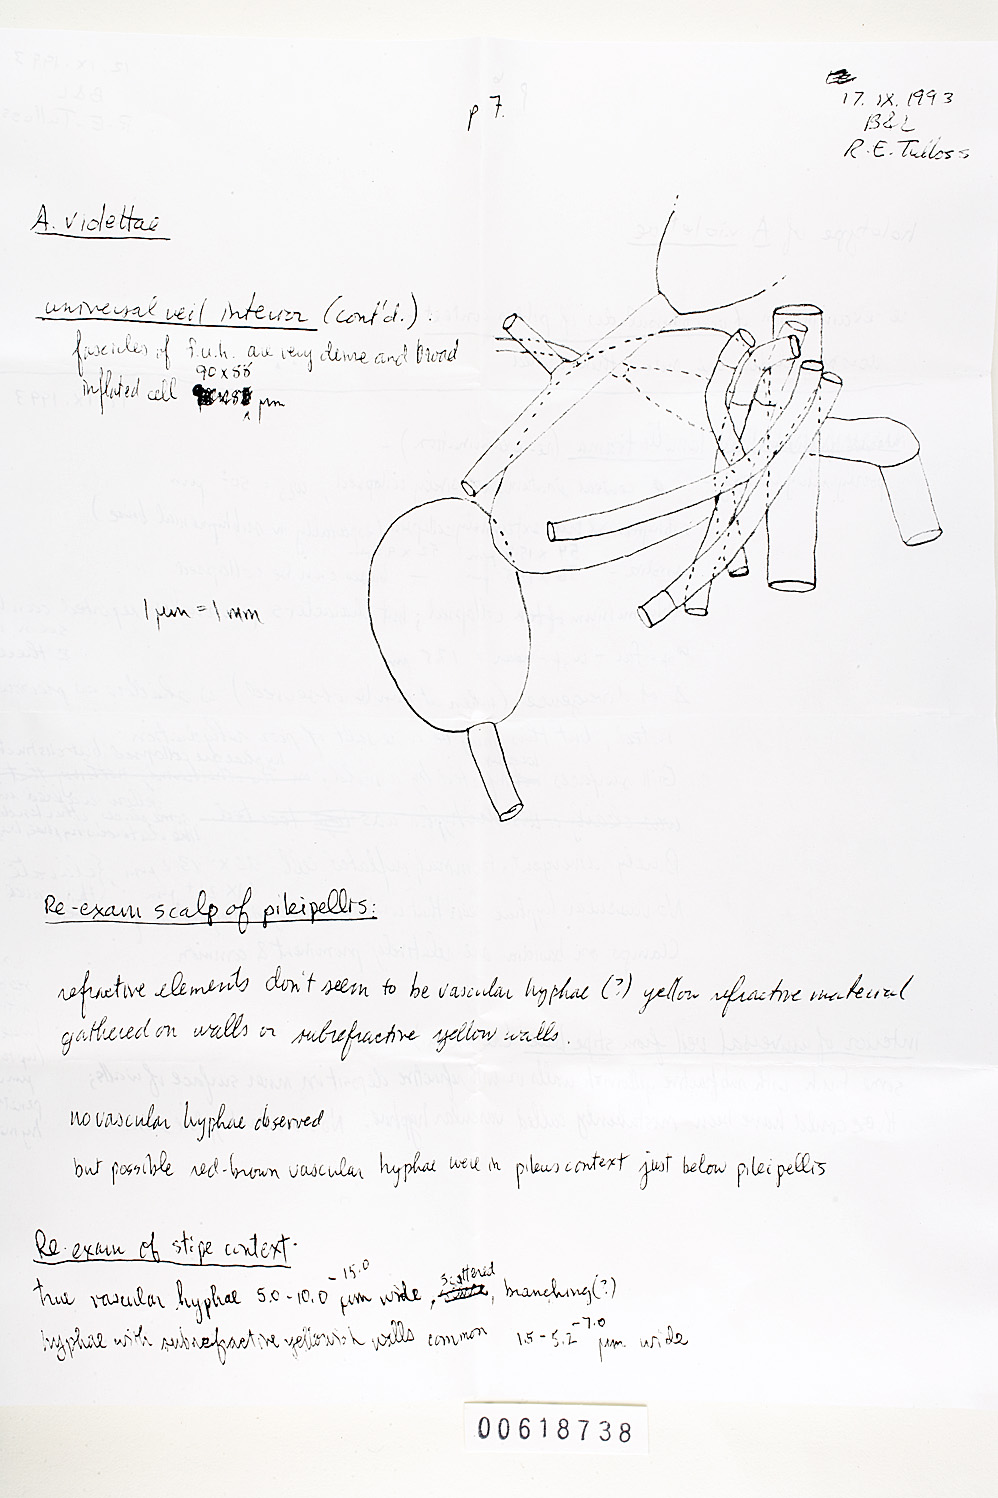 p 7.
17. IX. 1993
B&L
R. E. Tulloss
A. violettae
universal veil interior (cont'd.) :
fascicles of f.u.h. are very dense and broad
90 x 55
inflated cell μm
1 μm = 1 mm
Re-exam scalp of pileipellis:
refractive elements don't seem to be vascular hyphae (?) yellow refractive material
gathered on walls or subrefractive yellow walls.
no vascular hyphae observed
but possible red-brown vascular hyphae were in pileus context just below pileipellis
Re-exam of stipe context.
true vascular hyphae 5.0-10.0 -15.0 μm wide, scattered, branching(?)
hyphae with subrefractive yellowish walls common 1.5-5.2 -7.0 μm wide
00618738